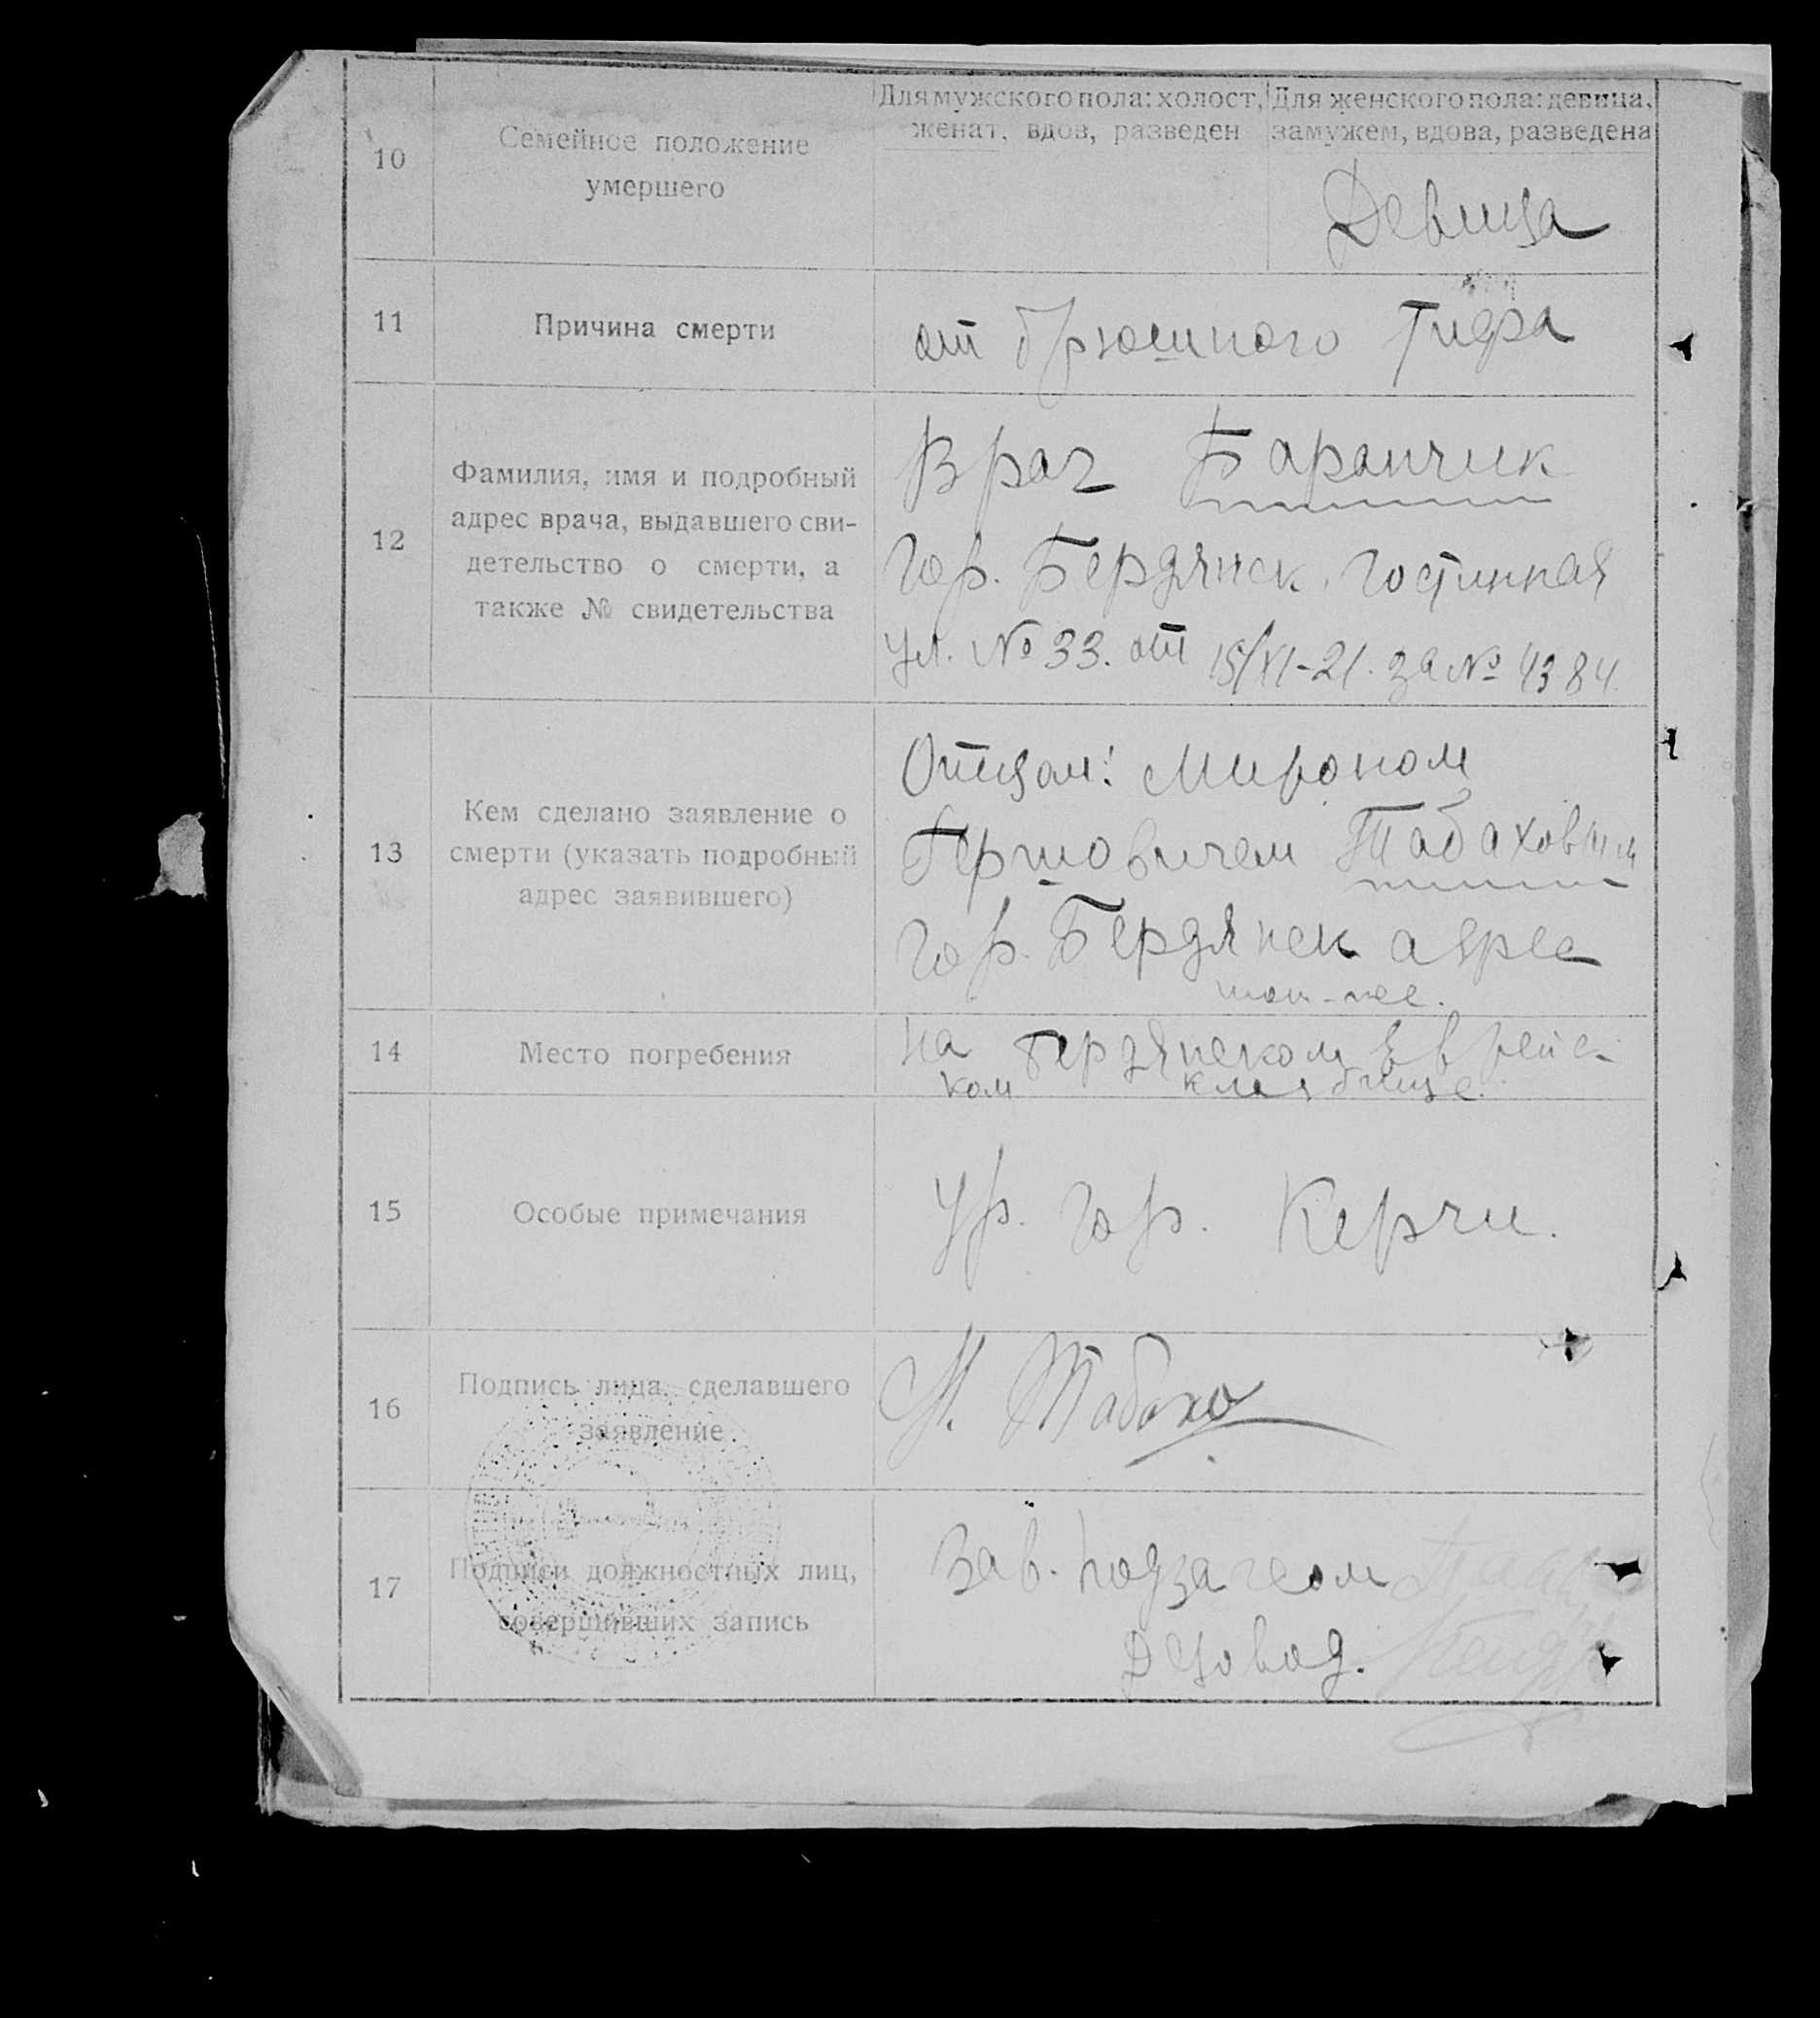 10
Семейное положение
умершего
Для мужского пола: холост,
женат, вдов, разведен
Для женского пола: девица,
замужем, вдова, разведена
Девица
11
Причина смерти
от брюшного Тифа
12
Фамилия, имя и подробный
адрес врача, выдавшего сви-
детельство о смерти, а
также № свидетельства
Врач Баранчик
Гор. Бердянск. Гостинная
ул. № 33. от 15/XI-21. за № 4384.
13
Кем сделано заявление о
смерти (указать подробный
адрес заявившего)
Отцом: Мироном
Гершовичем Табаховым
Гор. Бердянск адрес
тот-же.
14
Место погребения
на Бердянском Еврейс-
ком кладбище.
15
Особые примечания
Ур. гор. Керчи.
16
Подпись лица, сделавшего
заявление
М. Табахо
17
Подписи должностных лиц,
совершивших запись
Зав. подзагсом
Деловод.